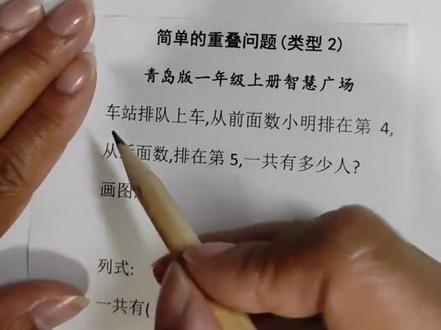 简单的重叠问题(类型 2)
青岛版一年级上册智慧广场
车站排队上车,从前面数小明排在第 4,
从面数,排在第 5,一共有多少人?
画图
列式:
一共有(